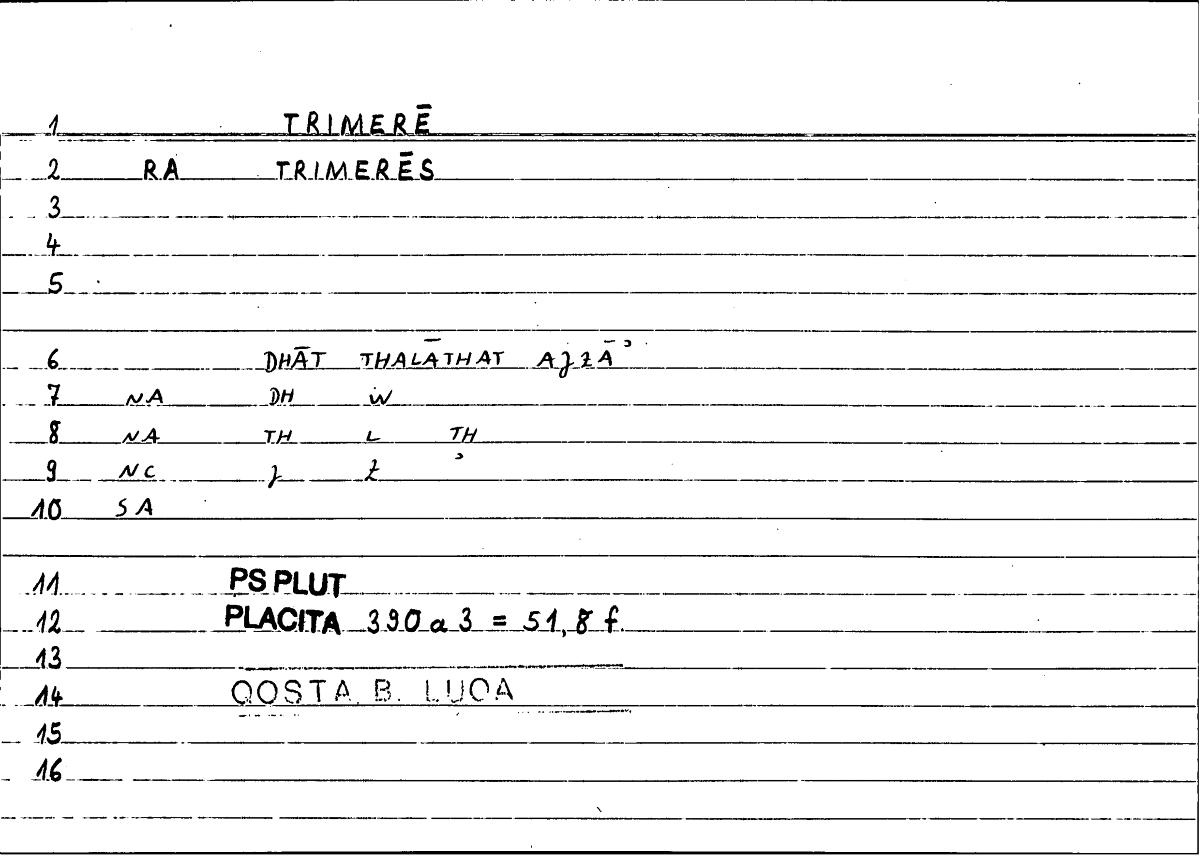 1 TRIMERĒ
2 RA TRIMERĒS
3
4
5
6 DHĀT THALĀTHAT AJZĀʾ
7 NA DH W
8 NA TH L TH
9 NC J Z ʾ
10 SA
11 PS PLUT
12 PLACITA 390 a 3 = 51, 8 f.
13
14 QOSTA B. LUQA
15
16